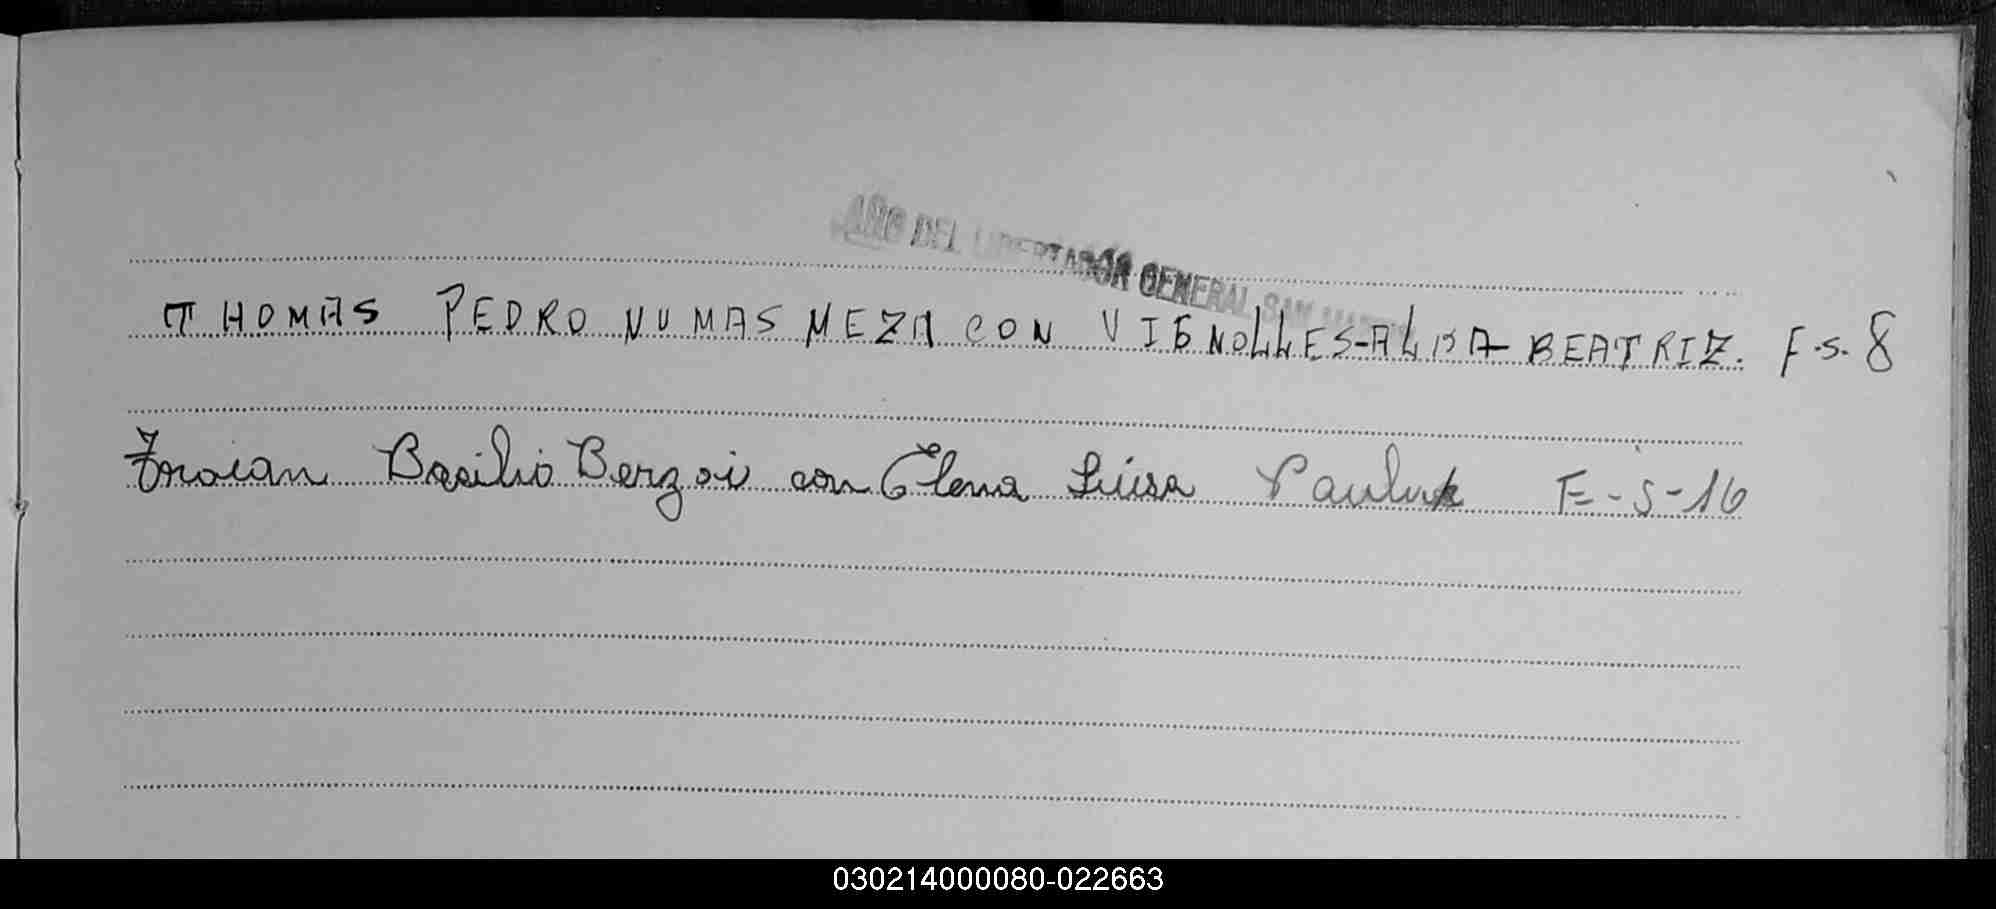 AÑO DEL LIBERTADOR GENERAL SAN MARTIN
THOMAS PEDRO NUMAS MEZA CON VIGNOLLES-ALBA BEATRIZ. F.S. 8
Troian Basilio Berzoi con Elena Luisa Pauluk F-S-16
030214000080-022663